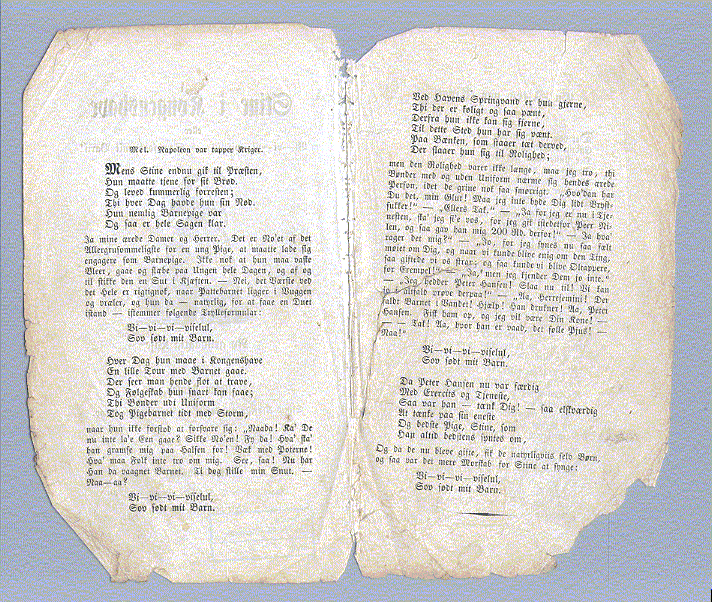 Mel. Napoleon var tapper Kriger.
Mens Stine endnu gik til Præsten,
Hun maatte tjene for sit Brød.
Og leved kummerlig forresten;
Thi hver Dag havde hun sin Nød.
Hun nemlig Barnepige var
Og saa er hele Sagen klar.
Ja mine ærede Damer og Herrer. Det er No'et af det
Allergrufommeligste for en ung Pige, at maatte lade sig
engagere som Barnepige. Ikke nok at hun maa vaske
Bleer, gaae og slæbe paa Ungen hele Dagen, og af og
til stikke den en Sut i Kjæften. — Nei, det Værste ved
det Hele er rigtignok, naar Pattebarnet ligger i Vuggen
og vræler, og hun da — natyrlig, for at faae en Duet
istand — istemmer følgende Trylleformular:
Vi—vi—vi—viselul,
Sov sødt mit Barn.
Hver Dag hun maae i Kongenshave
En lille Tour med Barnet gaae.
Der seer man hende flot at trave,
Og Følgeskab hun snart kan faae;
Thi Bønder udi Uniform
Tog Pigebarnet tidt med Storm,
naar hun ikke forstod at forsvare sig: „Naada! Ka' De
nu inte la'e Een gaae? Sikke No'en! Fy da! Hva' ska'
han gramse mig paa Halsen for! Væk med Poterne!
Hva' maa Folk inte tro om mig. See, saa! Nu har
Han da vaagnet Barnet. Ti dog stille min Snut. —
Naa—aa?
Vi—vi—vi—viselul,
Sov sødt mit Barn.
Ved Havens Springvand er hun gjerne,
Thi der er køligt og saa pænt,
Derfra hun ikke kan sig fjerne,
Til dette Sted hun har sig vænt.
Paa Bænken, som staaer tæt derved,
Der slaaer hun sig til Rolighed;
men den Rolighed varer ikke længe, maa jeg tro, thi
Bønder med og uden Uniform nærme sig hendes ærede
Person, idet de grine nok saa smørrigt. „Hvo'dan har
Du det, min Glut! Maa jeg inte byde Dig lidt Bryst-
sukker!" — „Ellers Tak." — „Ja for jeg er nu i Tje-
nesten, ska' jeg si'e vos, for jeg gik istedetfor Peer Ni-
len, og saa gav han mig 200 Rd. derfor!" — Ja hva'
rager det mig?" — „Jo, for jeg synes nu saa fælt
meiet om Dig, og naar vi kunde blive enig om den Ting,
saa giftede vi os strax; og saa kunde vi blive Oltappere,
for Exempel!" — „Ja, men jeg kjender Dem jo inte."
— „Jeg hedder Peter Hansen! Slaa nu til! Vi kan
jo i alfald prøve derpaa!" — „Aa, Herrejemini! Der
faldt Barnet i Vandet! Hjælp! Han drukner! Aa, Peter
Hansen. Fisk ham op, og jeg vil være Din Kone! —
— Tak! Aa, hvor han er vaad, det sølle Pjus! —
Naa!"
Vi—vi—vi—viselul,
Sov sødt mit Barn.
Da Peter Hansen nu var færdig
Med Exercits og Tjeneste,
Saa var han — tænk Dig! — saa elskværdig
At tænke paa sin eneste
Og bedste Pige, Stine, som
Han altid bedstens syntes om,
Og da de nu bleve gifte, fik de natyrligvis selv Børn,
og saa var det mere Morskab for Stine at synge:
Vi—vi—vi—viselul,
Sov sødt mit Barn.